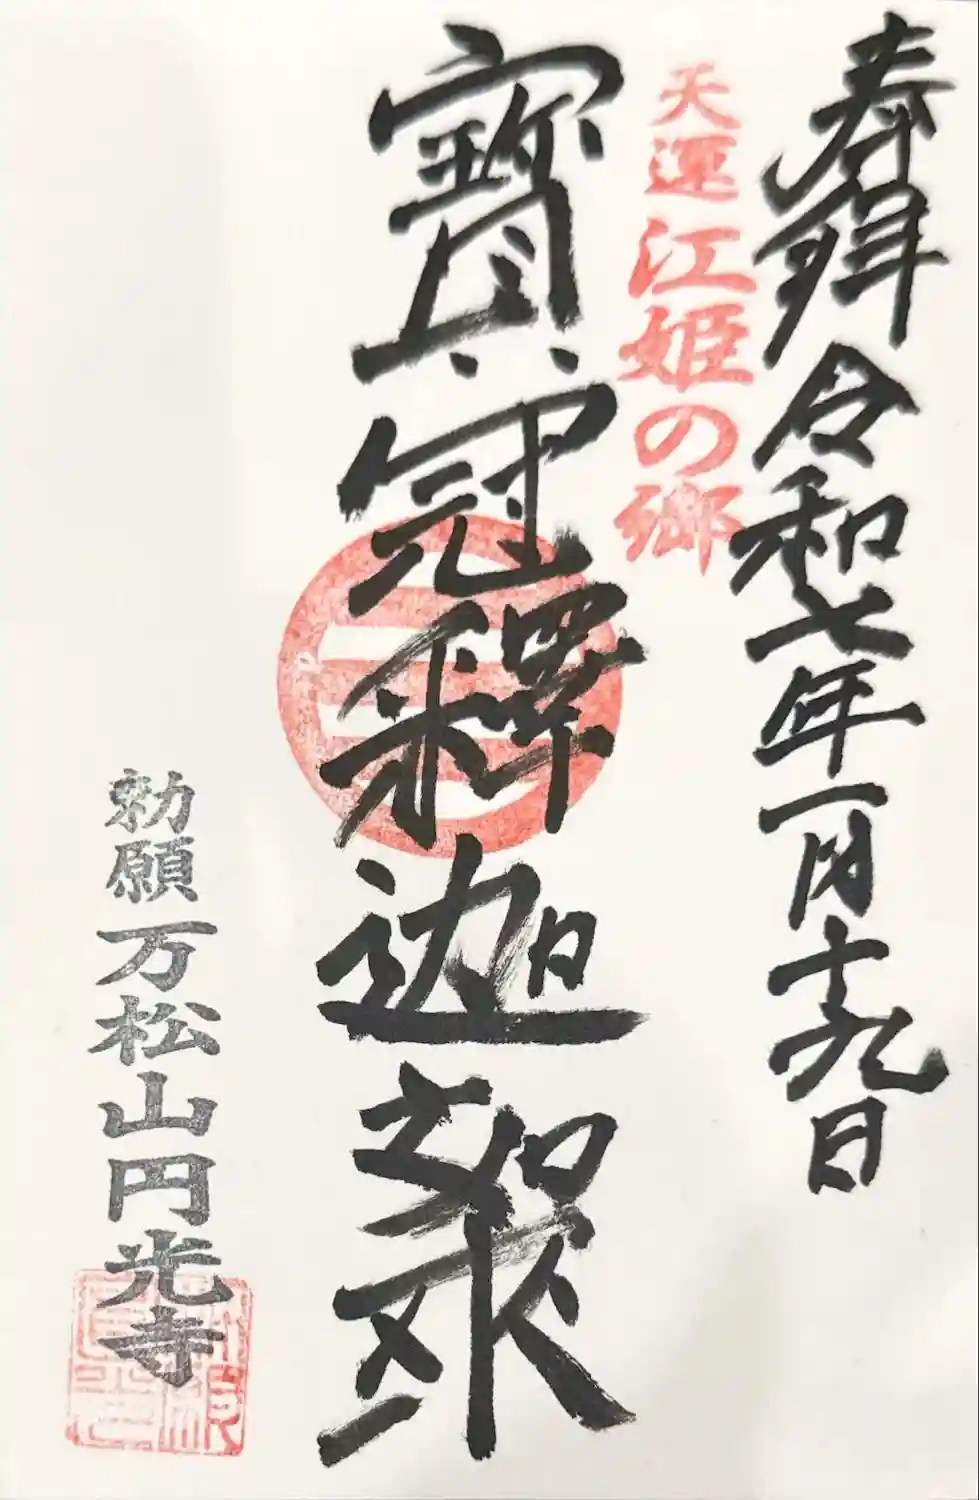 奉拜 令和七年一月十九日
天運 江姫の郷
寶冠釋迦
勅願 万松山円光寺